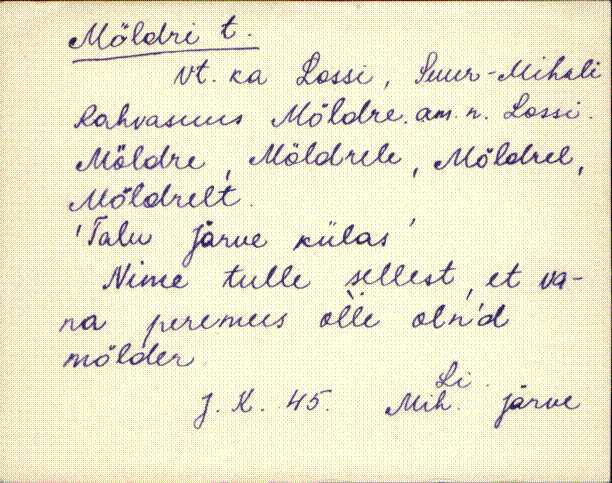 Möldri t.
Vt. ka Lossi, Suur-Mihkli
Rahvasuus Möldre. am. n. Lossi.
Möldre, Möldrele, Möldrel,
Möldrelt.
'Talu järve külas'
Nime tulle sellest, et va-
na peremees olle oln'd
mölder.
J. K. 45. Mih. Li. järve